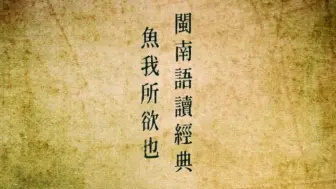 閩南語讀經典
魚我所欲也